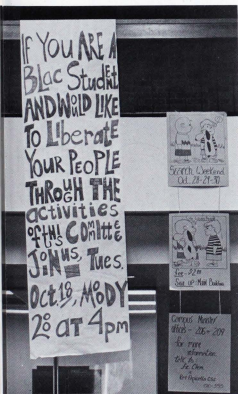 IF YOU ARE A
BLAC StudeNt
AND WOULD LIKE
To LIberate
YOUR PEOPLE
THROUGH THE
activities
of this COMMittE
JOIN us, Tues.
Oct. 18, MOODY
200 AT 4pm
Search Weekend
Oct. 28-29-30
Campus Minister
offices - 206-209
for more
information
talk to